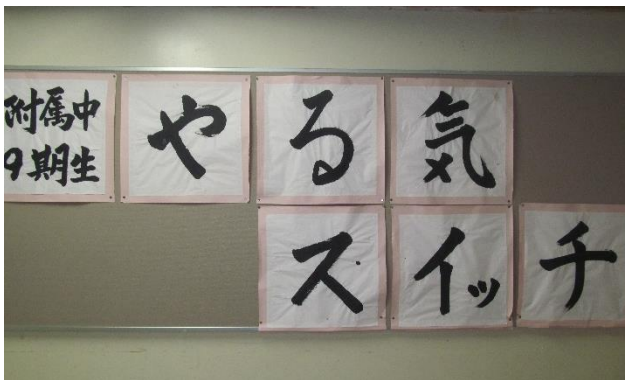 附属中
9期生
やる気
スイッチ